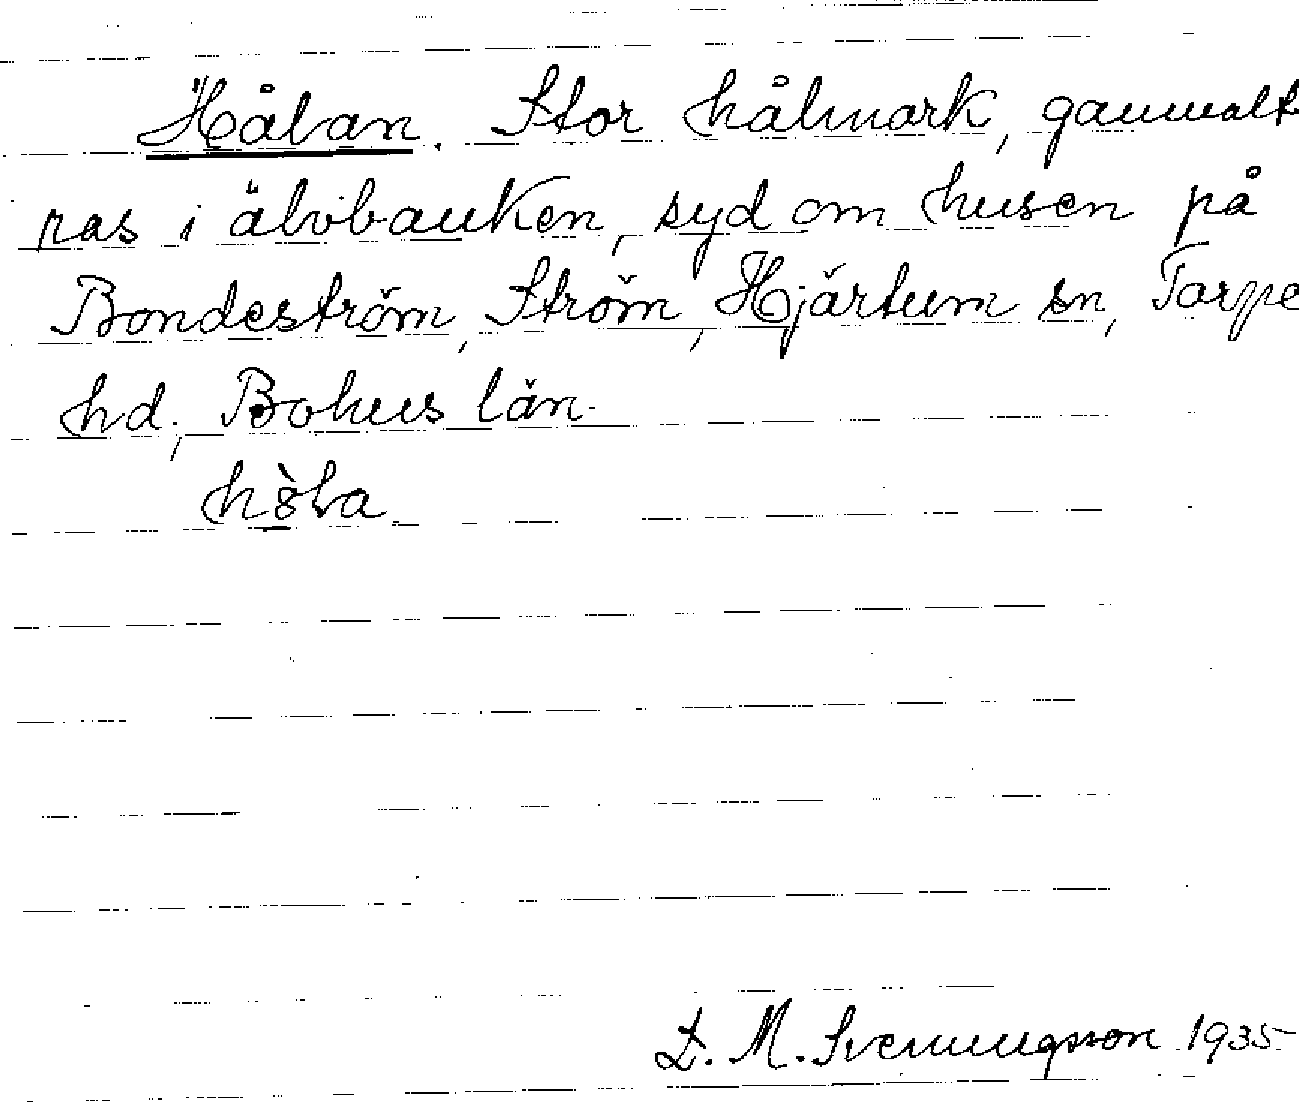 Hålan. Stor hålmark, gammalt
ras i älvbanken, syd om husen på
Bondeström, Ström, Hjärtum sn, Torpe
hd., Bohus län.
L. M. Svenningsson 1935